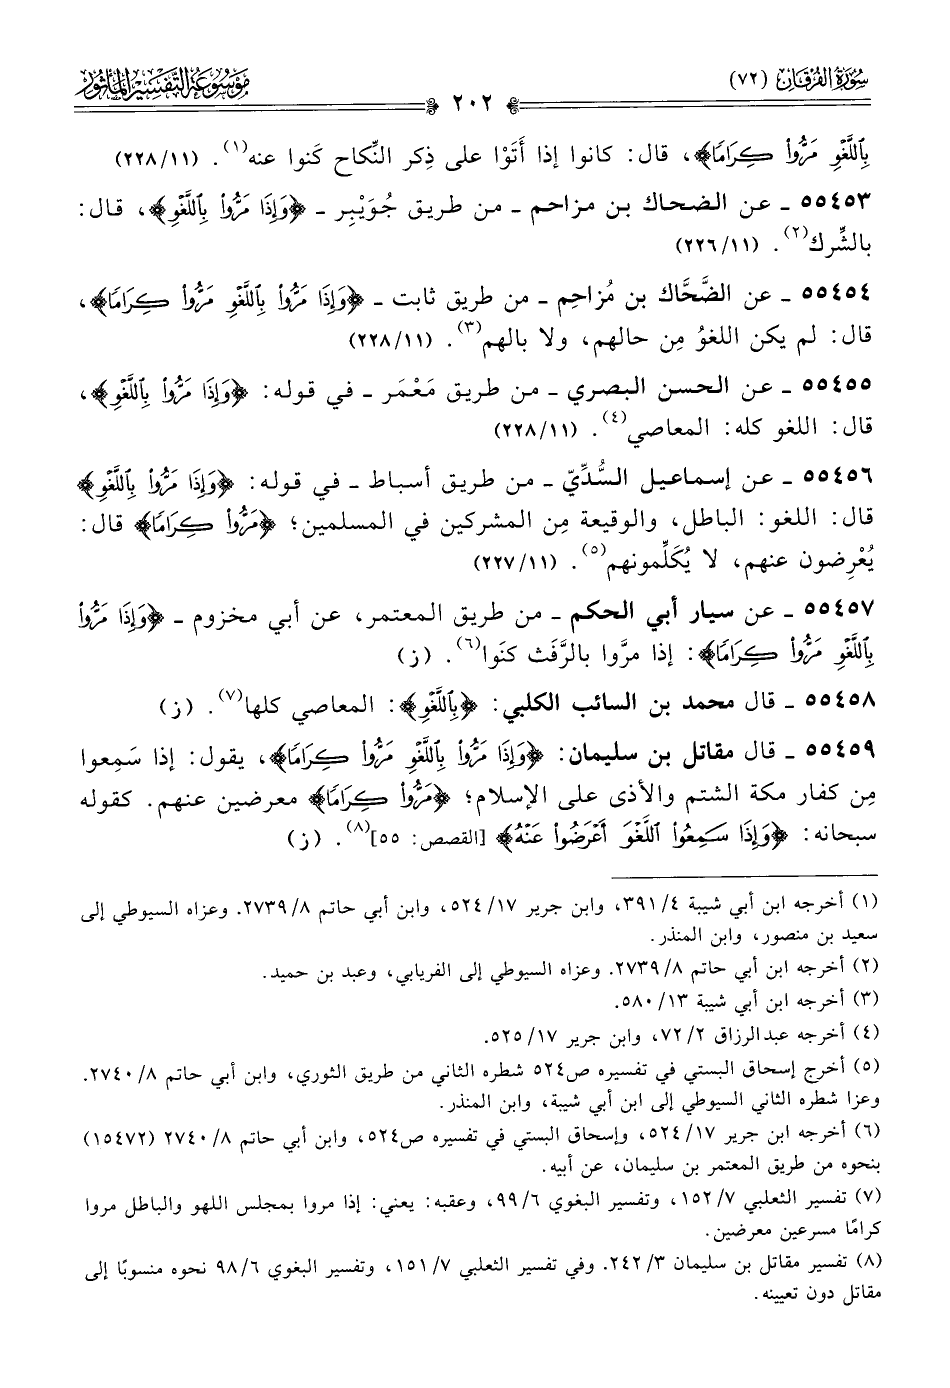 سُورَةُ الفُرْقَان (٧٢)
٢٠٢
مَوْسُوعَة التَّفْسِير المَأْثُور
بِٱللَّغْوِ مَرُّوا۟ كِرَامًا﴾، قال: كانوا إذا أَتَوْا على ذِكر النِّكاح كَنوا عنه(١). (١١/ ٢٢٨)
٥٥٤٥٣ ـ عن الضحاك بن مزاحم ـ من طريق جُوَيْبِر ـ ﴿وَإِذَا مَرُّوا۟ بِٱللَّغْوِ﴾، قال:
بالشِّرك(٢). (١١/ ٢٢٦)
٥٥٤٥٤ ـ عن الضَّحَّاك بن مُزاحِم ـ من طريق ثابت ـ ﴿وَإِذَا مَرُّوا۟ بِٱللَّغْوِ مَرُّوا۟ كِرَامًا﴾،
قال: لم يكن اللغوُ مِن حالهم، ولا بالهم(٣). (١١/ ٢٢٨)
٥٥٤٥٥ ـ عن الحسن البصري ـ من طريق مَعْمَر ـ في قوله: ﴿وَإِذَا مَرُّوا۟ بِٱللَّغْوِ﴾،
قال: اللغو كله: المعاصي(٤). (١١/ ٢٢٨)
٥٥٤٥٦ ـ عن إسماعيل السُّدِّيّ ـ من طريق أسباط ـ في قوله: ﴿وَإِذَا مَرُّوا۟ بِٱللَّغْوِ﴾
قال: اللغو: الباطل، والوقيعة مِن المشركين في المسلمين؛ ﴿مَرُّوا۟ كِرَامًا﴾ قال:
يُعْرِضون عنهم، لا يُكَلِّمونهم(٥). (١١/ ٢٢٧)
٥٥٤٥٧ ـ عن سيار أبي الحكم ـ من طريق المعتمر، عن أبي مخزوم ـ ﴿وَإِذَا مَرُّوا۟
بِٱللَّغْوِ مَرُّوا۟ كِرَامًا﴾: إذا مرَّوا بالرَّفَث كنَوا(٦). (ز)
٥٥٤٥٨ ـ قال محمد بن السائب الكلبي: ﴿بِٱللَّغْوِ﴾: المعاصي كلها(٧). (ز)
٥٥٤٥٩ ـ قال مقاتل بن سليمان: ﴿وَإِذَا مَرُّوا۟ بِٱللَّغْوِ مَرُّوا۟ كِرَامًا﴾، يقول: إذا سَمِعوا
مِن كفار مكة الشتم والأذى على الإسلام؛ ﴿مَرُّوا۟ كِرَامًا﴾ معرضين عنهم. كقوله
سبحانه: ﴿وَإِذَا سَمِعُوا۟ ٱللَّغْوَ أَعْرَضُوا۟ عَنْهُ﴾ [القصص: ٥٥](٨). (ز)
(١) أخرجه ابن أبي شيبة ٤/ ٣٩١، وابن جرير ١٧/ ٥٢٤، وابن أبي حاتم ٨/ ٢٧٣٩. وعزاه السيوطي إلى
سعيد بن منصور، وابن المنذر.
(٢) أخرجه ابن أبي حاتم ٨/ ٢٧٣٩. وعزاه السيوطي إلى الفريابي، وعبد بن حميد.
(٣) أخرجه ابن أبي شيبة ١٣/ ٥٨٠.
(٤) أخرجه عبدالرزاق ٢/ ٧٢، وابن جرير ١٧/ ٥٢٥.
(٥) أخرج إسحاق البستي في تفسيره ص٥٢٤ شطره الثاني من طريق الثوري، وابن أبي حاتم ٨/ ٢٧٤٠.
وعزا شطره الثاني السيوطي إلى ابن أبي شيبة، وابن المنذر.
(٦) أخرجه ابن جرير ١٧/ ٥٢٤، وإسحاق البستي في تفسيره ص٥٢٤، وابن أبي حاتم ٨/ ٢٧٤٠ (١٥٤٧٢)
بنحوه من طريق المعتمر بن سليمان، عن أبيه.
(٧) تفسير الثعلبي ٧/ ١٥٢، وتفسير البغوي ٦/ ٩٩، وعقبه: يعني: إذا مروا بمجلس اللهو والباطل مروا
كرامًا مسرعين معرضين.
(٨) تفسير مقاتل بن سليمان ٣/ ٢٤٢. وفي تفسير الثعلبي ٧/ ١٥١، وتفسير البغوي ٦/ ٩٨ نحوه منسوبًا إلى
مقاتل دون تعيينه.